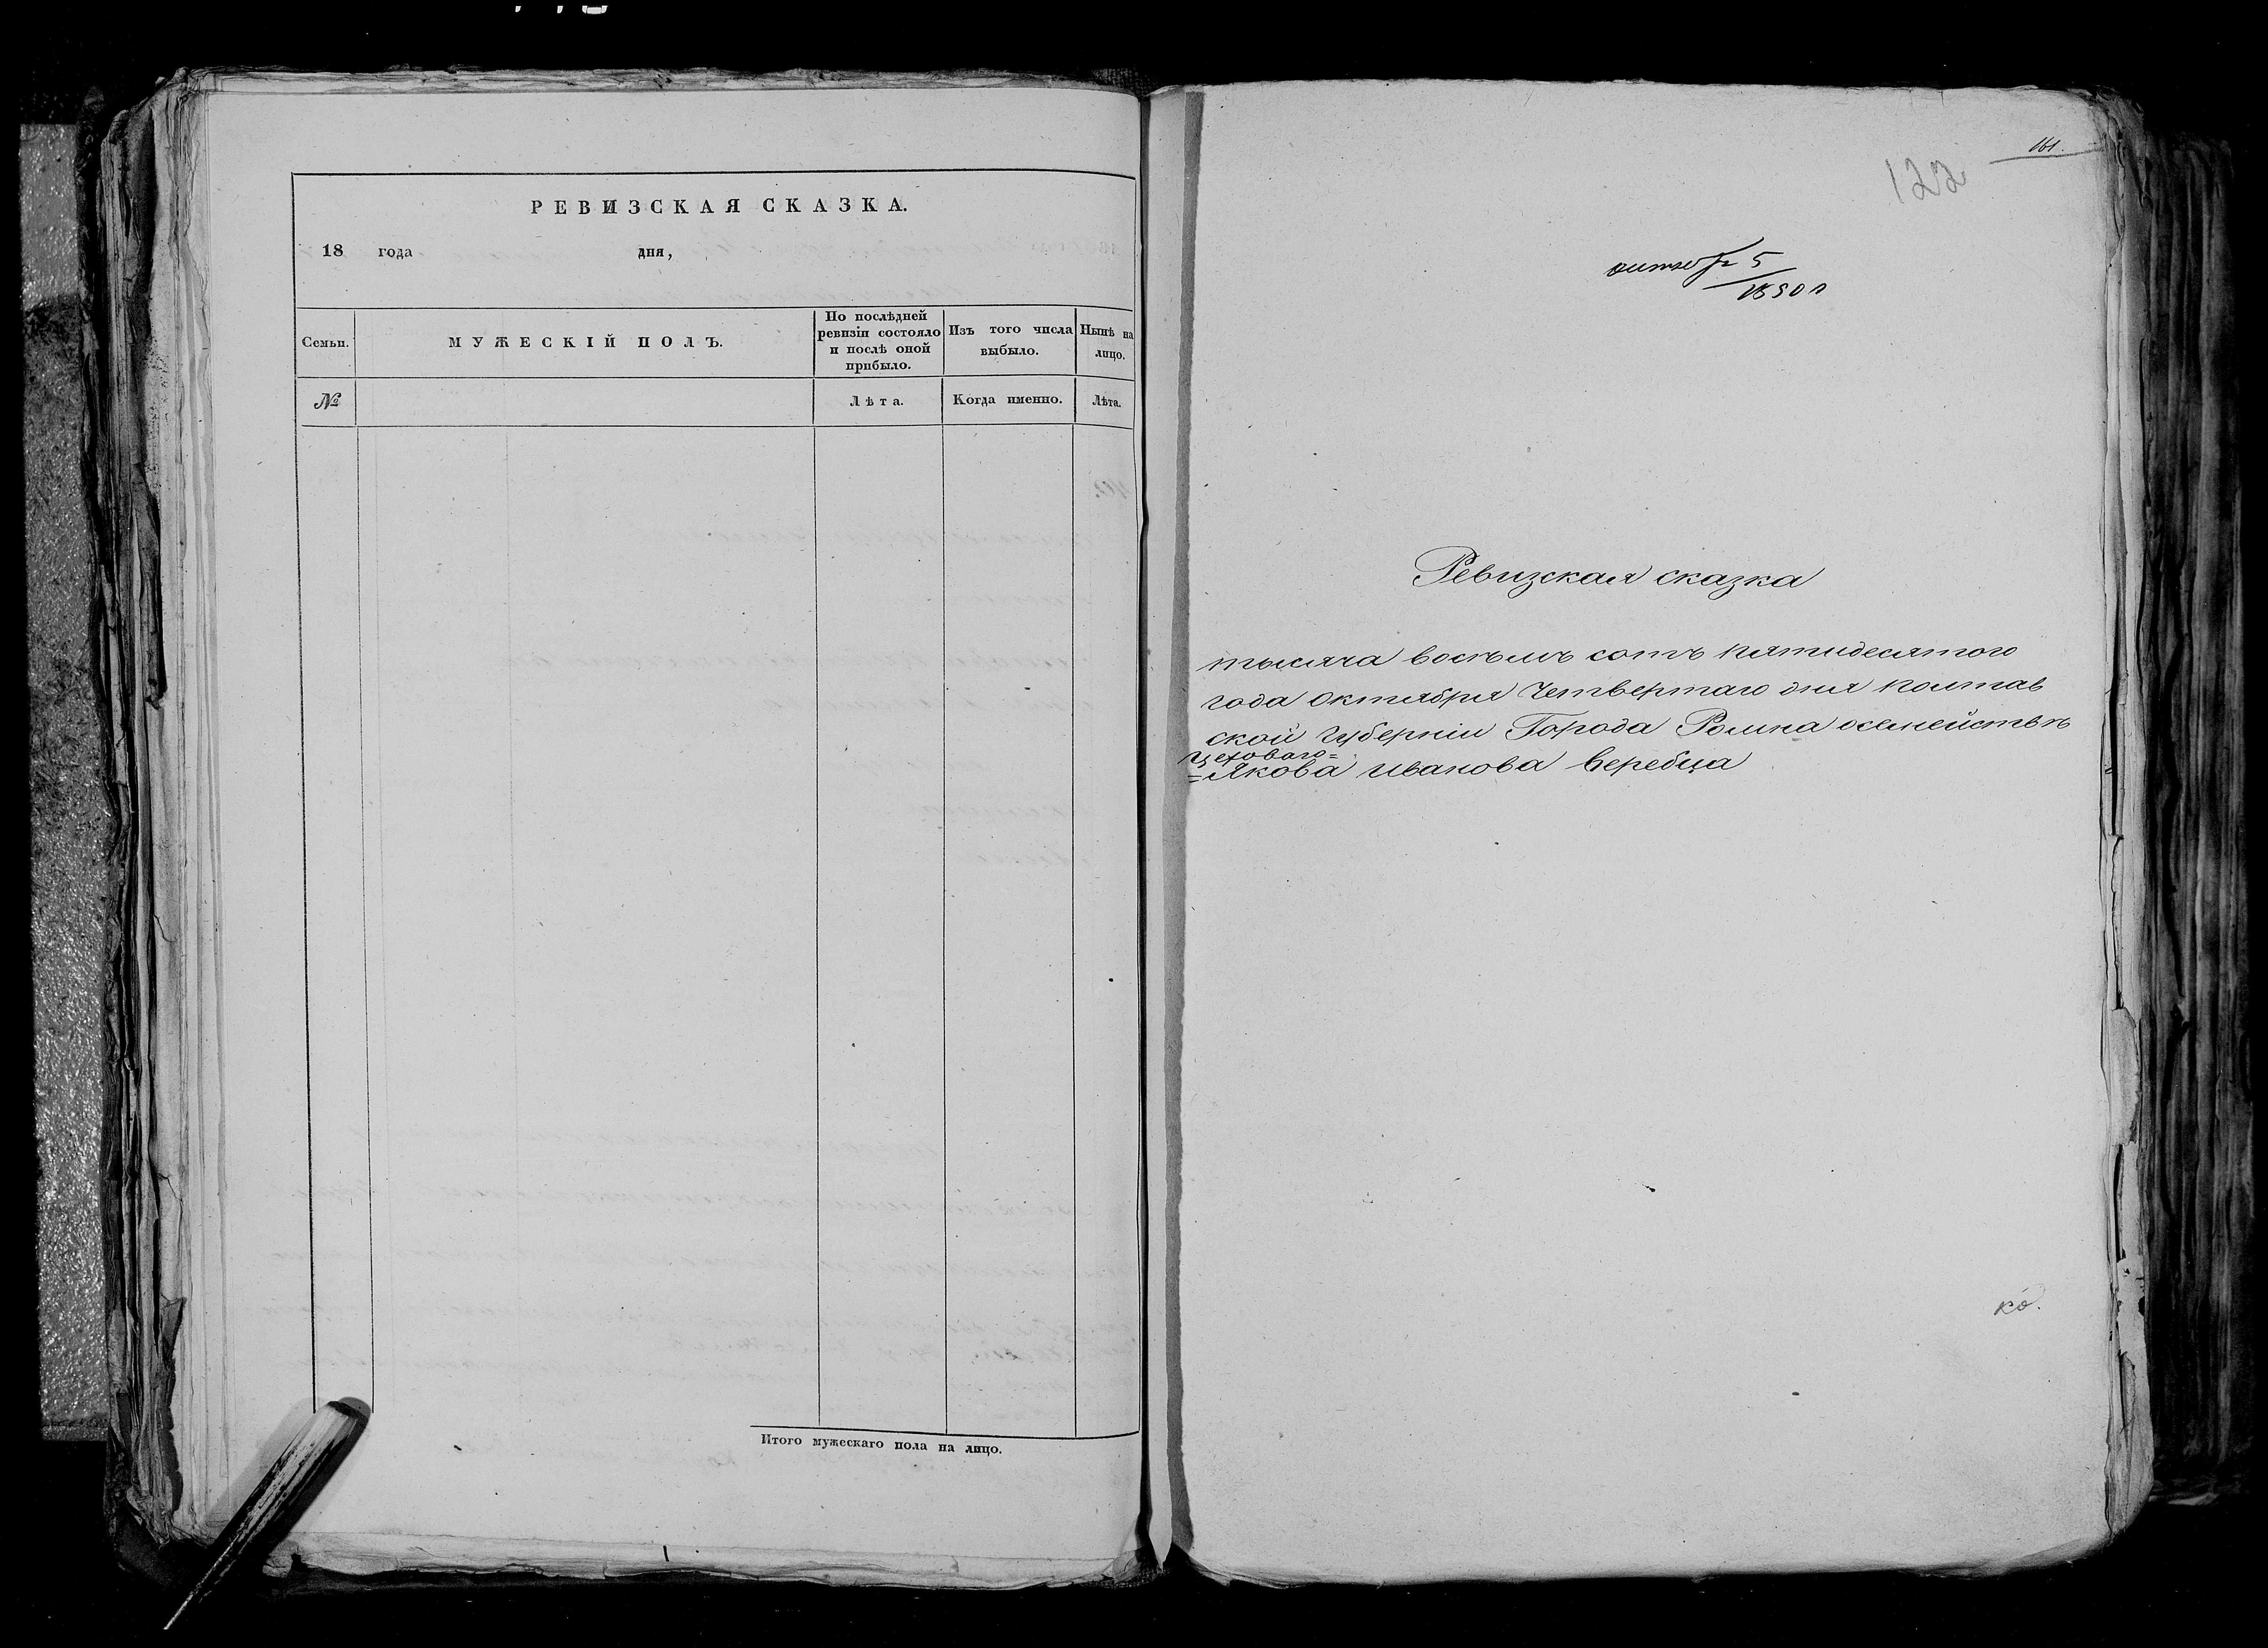 РЕВИЗСКАЯ СКАЗКА.
18 года дня,
Семьи.
МУЖЕСКІЙ ПОЛЪ.
По послѣдней ревизіи состояло и послѣ оной прибыло.
Изъ того числа выбыло.
Нынѣ на лицо.
№
Лѣта.
Когда именно.
Лѣта.
Итого мужескаго пола на лицо.
161.
122
октября 5
1850 г
Ревизская сказка
тысяча восемь сотъ пятидесятого
года октября Четвертаго дня полтав
ской губерніи Города Ромна осемействѣ
цеховаго=
=Якова иванова веребца